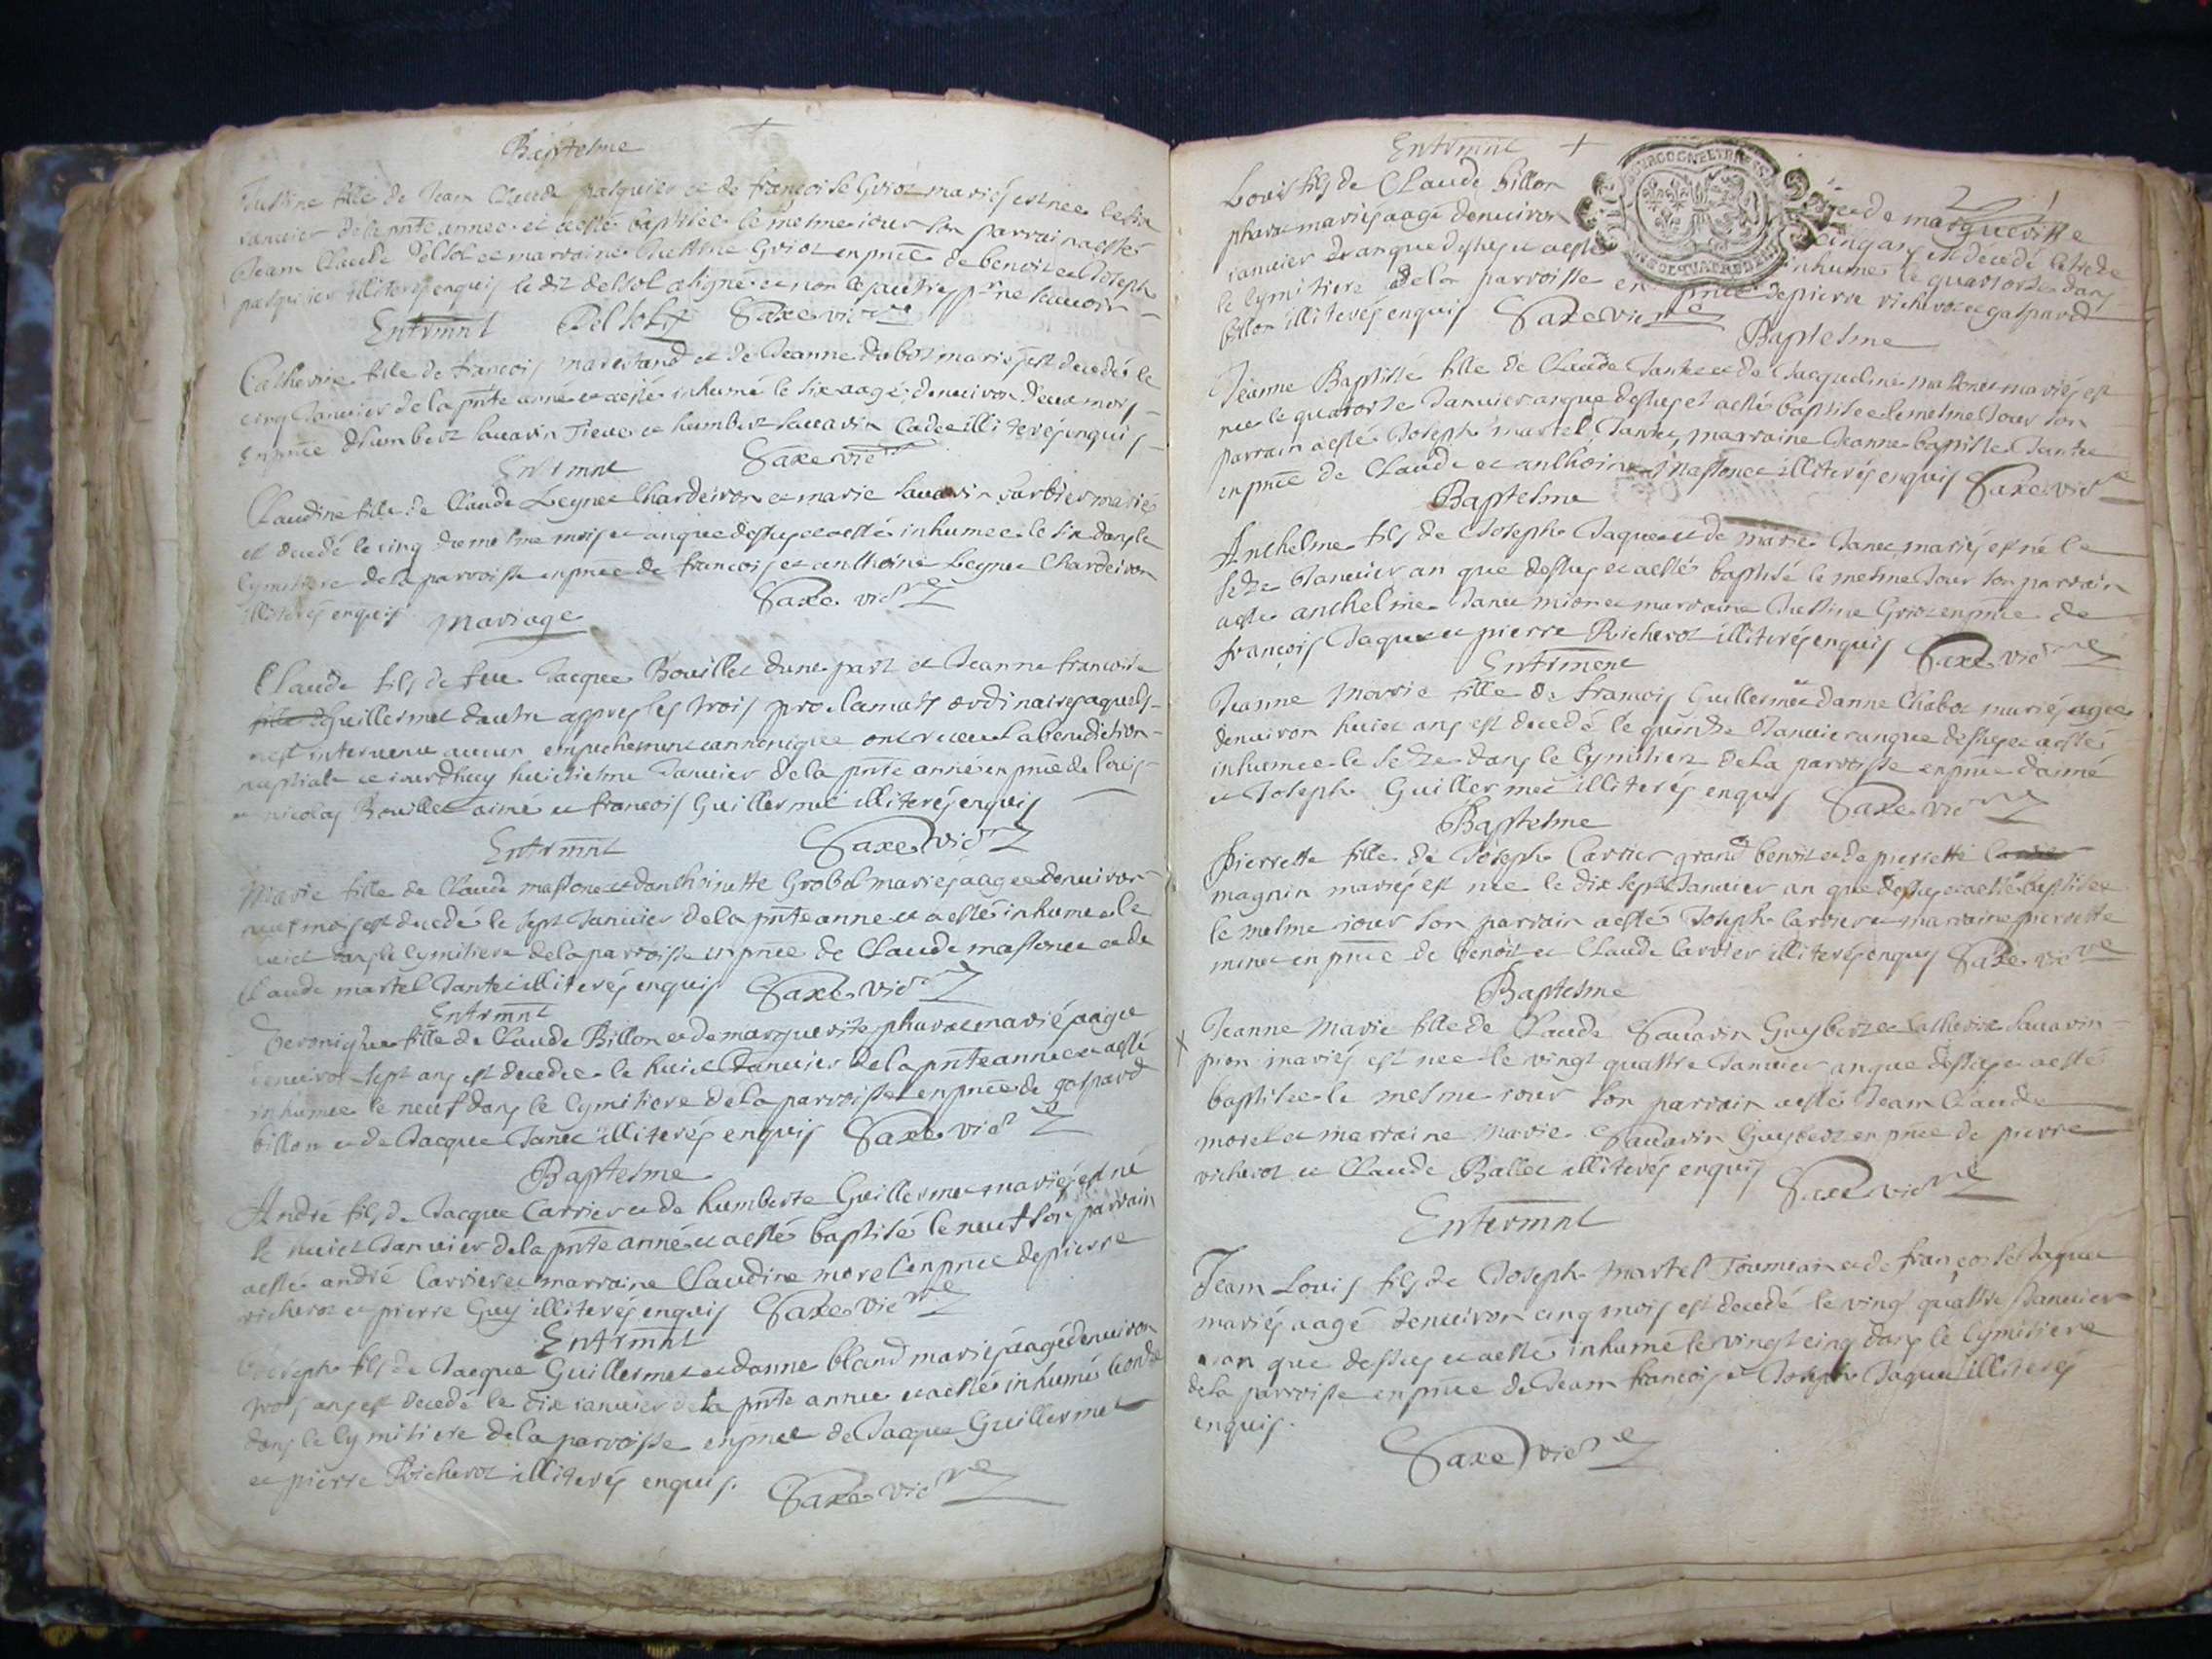 Baptesme
Justine fille de Jean Claude pasquier et de françoise Griot mariés est nee le six
janvier de la pnte annee et a esté baptisée le mesme jour son parrain a esté
Jean Claude Delsol et marraine Justine Griot en pnce de benoit et Joseph
pasquier illiterés enquis le dit delsol a signé et non les autres pr ne scavoir
Entrmnt Delsol Saxe vicre
Catherine fille de françois marestand et de Jeanne dubot mariés est decedé le
cinq Janvier de la pnte anné et a esté inhumé le six aagé denviron deux mois
en pnce dhumbert savarin et humbert savarin Cadet illiterés enquis
Entrmnt Saxe vicre
Claudine fille de Claude Leynet Chardeiron et marie savarin barbier mariés
est decedé le cinq du mesme mois et an que dessus et a esté inhumee le six dans le
Cymitiere de la parroisse en pnce de françois et anthoine Leynet Chardeiron
illiterés enquis Saxe vicre
Mariage
Claude fils de feu Jacque Bouillet dune part et Jeanne francoise
fille de Guillermet dautre appres les trois proclamats ordinaires auquels
nest intervenu aucun empechement cannonique ont receu la benediction
nuptiale ce jourdhuy huictiesme Janvier de la pnte anné en pnce de louis
et nicolas Bouillet aimé et francois Guillermet illiterés enquis
Entrmnt Saxe vicre
Marie fille de Claude massonet et danthoinette Grobel mariés aagee denviron
neuf mois est decedé le sept Janvier de la pnte anne et a esté inhumee le
huict dans le Cymitiere de la parroisse en pnce de Claude massonet et de
Claude martel Jantet illiterés enquis Saxe vicre
Entrmnt
Veronique fille de Claude Billon et de marguerite pharat mariés aagee
denviron sept ans est decedee le huict Janvier de la pnte annee et a esté
inhumee le neuf dans le Cymitiere de la parroisse en pnce de gaspard
billon et de Jacque Janet illiterés enquis Saxe vicre
Baptesme
Andre fils de Jacque Carrier et de humberte Guillermet mariés est né
le huict Janvier de la pnte anné et a esté baptisé le neuf son parrain
a esté andré Carrier et marraine Claudine morel en pnce de pierre
richerot et pierre Guy illiterés enquis Saxe vicre
Entrmnt
Joseph fils de Jacque Guillermet et danne bland mariés aagé denviron
trois ans est decedé le dix janvier de la pnte annee et a esté inhumé le onze
dans le Cymitiere de la parroisse en pnce de Jacque Guillermet
et pierre Richerot illiterés enquis. Saxe vicre
Entrmnt
Louis fils de Claude billon et de margueritte
pharat mariés aagé denviron cinq ans est décedé le treze
janvier an que dessus et a esté inhumé le quatorze dans
le Cymitiere de la parroisse en pnce de pierre richerot et gaspard
billon illiterés enquis Saxe vicre
Baptesme
Jeanne Baptiste fille de Claude Jantet et de Jacqueline massonet mariés est
nee le quatorze Janvier an que dessus et a esté baptisee le mesme Jour son
parrain a esté Joseph martel Jantet, marraine Jeanne baptiste Jantet
en pnce de Claude et anthoine massonet illiterés enquis Saxe vicre
Baptesme
Anthelme fils de Joseph Jaquet et de marie Janet mariés est né le
seze Janvier an que dessus et a esté baptisé le mesme Jour son parrain
a esté anthelme Janet mion et marraine Justine Griot en pnce de
françois Jaquet et pierre Richerot illiterés enquis Saxe vicre
Entrment
Jeanne Marie fille de francois Guillermet danne Chabot mariés agee
denviron huict ans est decedé le quinze Janvier an que dessus et a esté
inhumee le seze dans le Cymitiere de la parroisse en pnce daimé
et Joseph Guillermet illiterés enquis Saxe vicre
Baptesme
Pierrette fille de Joseph Carrier grand benoit et de pierrette
magnin mariés est nee le dix sept Janvier an que dessus et a esté baptisee
le mesme jour son parrain a esté Joseph Carrier et marraine pierrette
minet en pnce de benoit et Claude Carrier illiterés enquis Saxe vicre
Baptesme
Jeanne Marie fille de Claude Savarin Guybert et Catherine Savarin
pion mariés est nee le vingt quattre Janvier an que dessus et a esté
baptisee le mesme jour son parrain a esté Jean Claude
morel et marraine Marie Savarin Guybert en pnce de pierre
richerot et Claude Ballet illiterés enquis Saxe vicre
Entermnt
Jean Louis fils de Joseph Martel Tournian et de françoise Jaquet
mariés aagé denviron cinq mois est decedé le vingt quattre Janvier
an que dessus et a esté inhumé le vingt cinq dans le Cymitiere
de la parroisse en pnce de Jean francois et Joseph Jaquet illiterés
enquis.
Saxe vicre